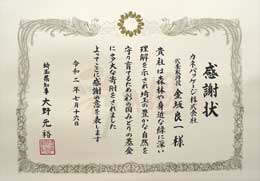 感謝状
カネパッケージ株式会社
代表取締役 金坂良一 様
貴社は森林や身近な緑に深い
理解を示され埼玉の豊かな自然を
守り育てるため彩の国みどりの基金
に多大な寄附をされました
よってここに感謝の意を表します
令和二年七月十六日
埼玉県知事 大野元裕